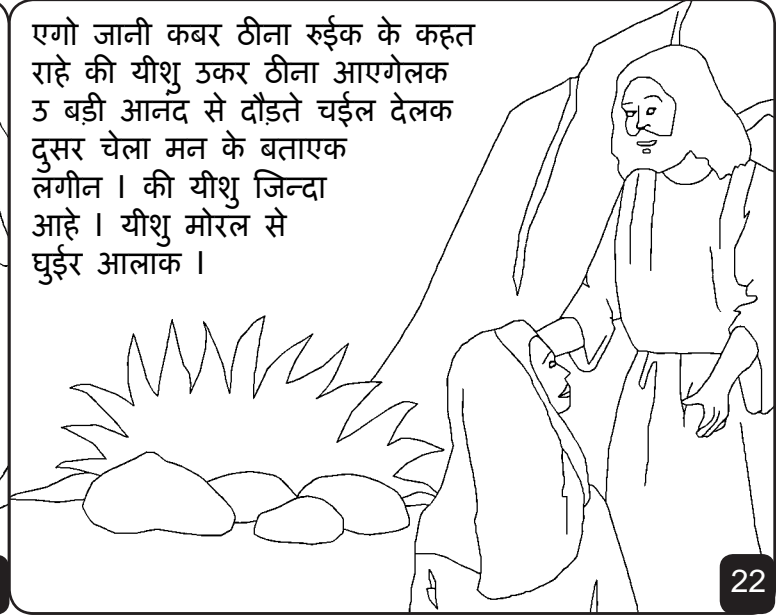 एगो जानी कबर ठीना रुईक के कहत
राहे की यीशु उकर ठीना आएगेलक
उ बड़ी आनंद से दौड़ते चईल देलक
दुसर चेला मन के बताएक
लगीन । की यीशु जिन्दा
आहे । यीशु मोरल से
घुईर आलाक ।
22